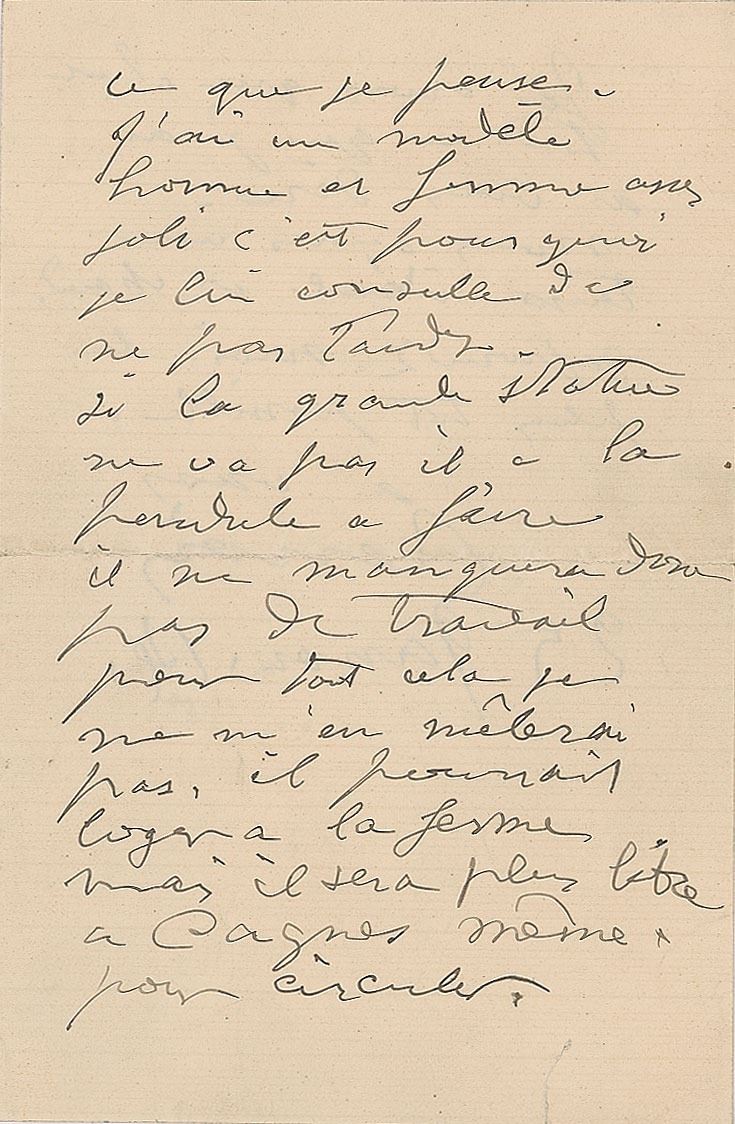 ce que je pense.
J'ai un modèle
homme et femme assez
joli c'est pourquoi
je lui conseille de
ne pas tarder.
si la grande statue
ne va pas il a la
pendule a faire
il ne manquera donc
pas de travail
pour tout cela je
ne m'en mêlerai
pas, il pourrait
loger a la ferme
mais il sera plus libre
a Cagnes même.
pour circuler.